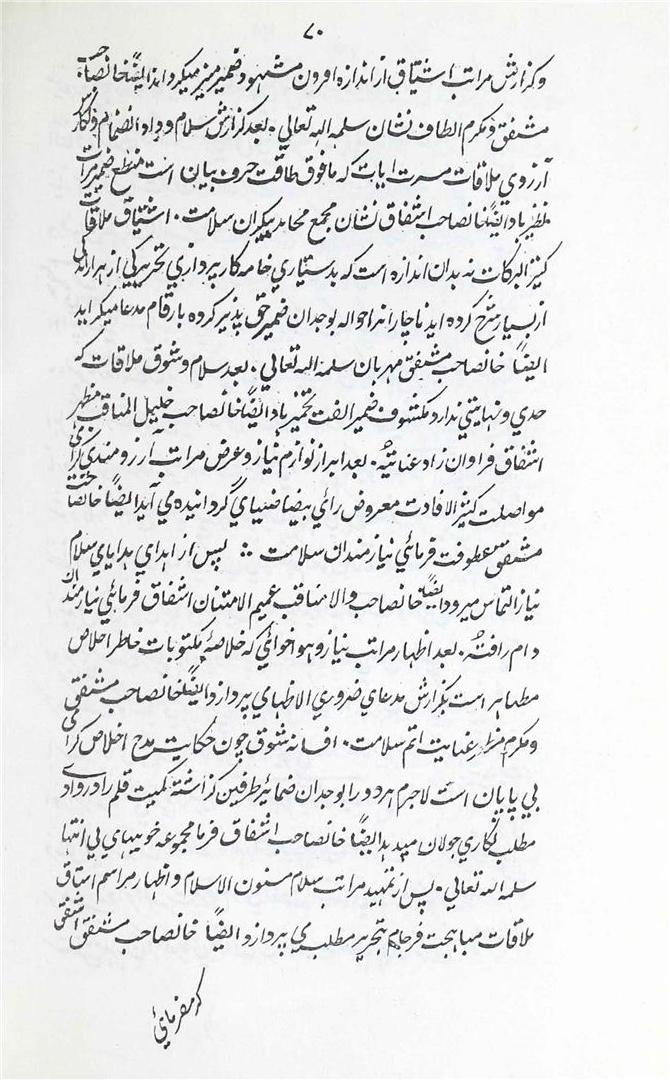 ۷۰
و گزارش مراتب اشتیاق از اندازه افزون مشهود ضمیر منیر میگرداند ایضًا خانصاحب
مشفق و مکرم الطاف نشان سلمه الله تعالی . بعد گزارش سلام و داد انضمام و نگارش
آرزوی ملاقات مسرت ایات که مافوق طاقت حرف و بیان است منطبع ضمیر مرات
نظیر باد ایضًا خانصاحب اشفاق نشان مجمع محامد بیکران سلامت . اشتیاق ملاقات
کثیر البرکات نه بدان اندازه است که بدستیاری خامه کار پردازی تحریر یکی از هزار و اندکی
از بسیار شرح کرده اید ناچار انرا حواله بوجدان ضمیر حق پذیر کرده بارقام مدعا میگراید
ایضًا خانصاحب مشفق مهربان سلمه الله تعالی . بعد سلام و شوق ملاقات که
حدی و نهایتی ندارد مکشوف ضمیر الفت تخمیر باد ایضًا خانصاحب جلیل المناقب مظهر
اشفاق فراوان زاد عنایته . بعد ابراز لوازم نیاز و عرض مراتب آرزومندی گرامی
مواصلت کثیر الافادت معروض رای بیضا ضیای گردانیده می آید ایضًا خانصاحب
مشفق عطوفت فرمائی نیازمندان سلامت ؞ پس از اهدای هدایای سلام
نیاز التماس میرود ایضًا خانصاحب والا مناقب عمیم الامتنان اشفاق فرمائی نیازمندان
دام رافته . بعد اظهار مراتب نیاز و هواخوائی که خلاصهٔ مکتوبات خاطر اخلاص
مظاهر است بگزارش مدعای ضروری الاظهای بپردازد ایضًا خانصاحب مشفقی
و مکرم مظهر عنایت اتم سلامت . افسانه شوق چون حکایت مدح اخلاص گرای
بی پایان است لاجرم هر دو را بوجدان ضمائر طرفین گزاشته کمیت قلم را در وادی
مطلب نگاری جولان میدهد ایضًا خانصاحب اشفاق فرما مجموعه خوبیهای بی انتها
سلمه الله تعالی . پس از تمهید مراتب سلام مسنون الاسلام و اظهار مراسم اشتیاق
ملاقات مباهجت فرجام بتحریر مطلب می پردازد ایضًا خانصاحب مشفقی اشفقی
کرمفرمای